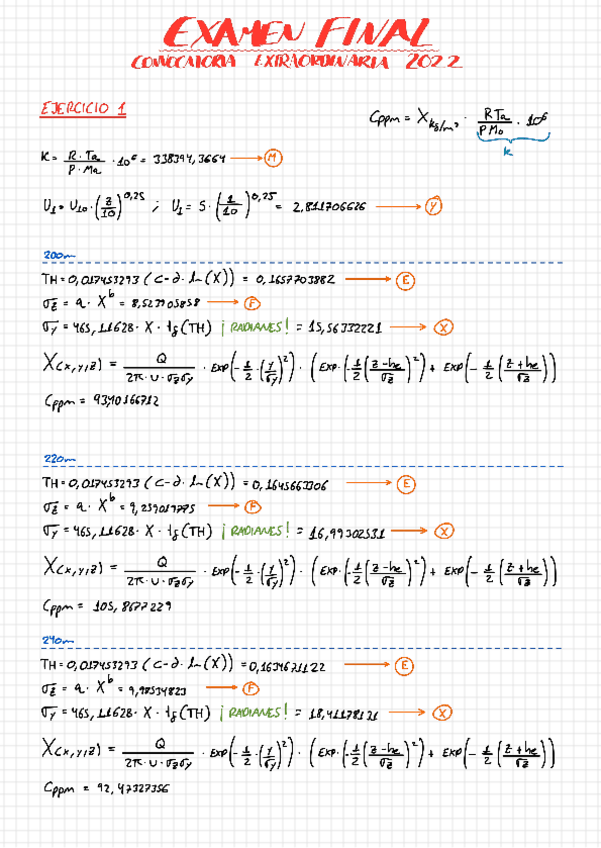 EXAMEN FINAL
CONVOCATORIA EXTRAORDINARIA 2022
EJERCICIO 1
Cppm = X kg/m³ · R Ta / P Mo · 10⁶
k
K = R · Ta / P · Ma · 10⁶ = 338394,3664 → M
U1 = U10 · (z/10)^0,25 ; U1 = 5 · (1/10)^0,25 = 2,811706626 → Y
200m
TH = 0,017453293 (c - d · ln(X)) = 0,1657703882 → E
σz = a · X^b = 8,527905858 → F
σy = 465,11628 · X · tg(TH) ¡RADIANES! = 15,56332221 → X
X(x,y,z) = Q / 2π · U · σz σy · EXP(-1/2 · (y/σy)²) · (EXP · (-1/2 (z-he/σz)²) + EXP(-1/2 (z+he/σz))
Cppm = 93,90166712
220m
TH = 0,017453293 (c - d · ln(X)) = 0,1645663306 → E
σz = a · X^b = 9,259019775 → F
σy = 465,11628 · X · tg(TH) ¡RADIANES! = 16,99302531 → X
X(x,y,z) = Q / 2π · U · σz σy · EXP(-1/2 · (y/σy)²) · (EXP · (-1/2 (z-he/σz)²) + EXP(-1/2 (z+he/σz))
Cppm = 105,8677229
240m
TH = 0,017453293 (c - d · ln(X)) = 0,1634671122 → E
σz = a · X^b = 9,98534823 → F
σy = 465,11628 · X · tg(TH) ¡RADIANES! = 18,41178121 → X
X(x,y,z) = Q / 2π · U · σz σy · EXP(-1/2 · (y/σy)²) · (EXP · (-1/2 (z-he/σz)²) + EXP(-1/2 (z+he/σz))
Cppm = 92,47327356